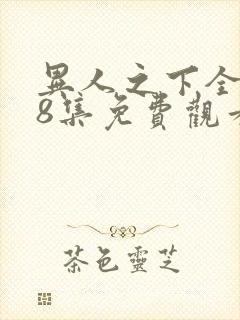 異人之下全
8集免費觀
茶色靈芝